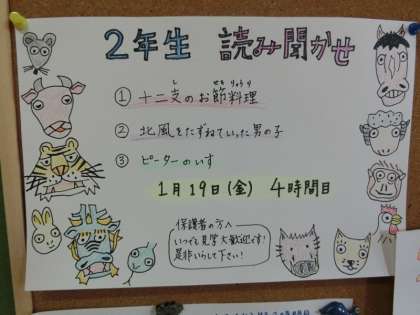 2年生 読み聞かせ
① 十二支のお節料理
② 北風をたずねていった男の子
③ ピーターのいす
1月19日(金) 4時間目
保護者の方へ
いつでも見学大歓迎です!
是非いらして下さい!